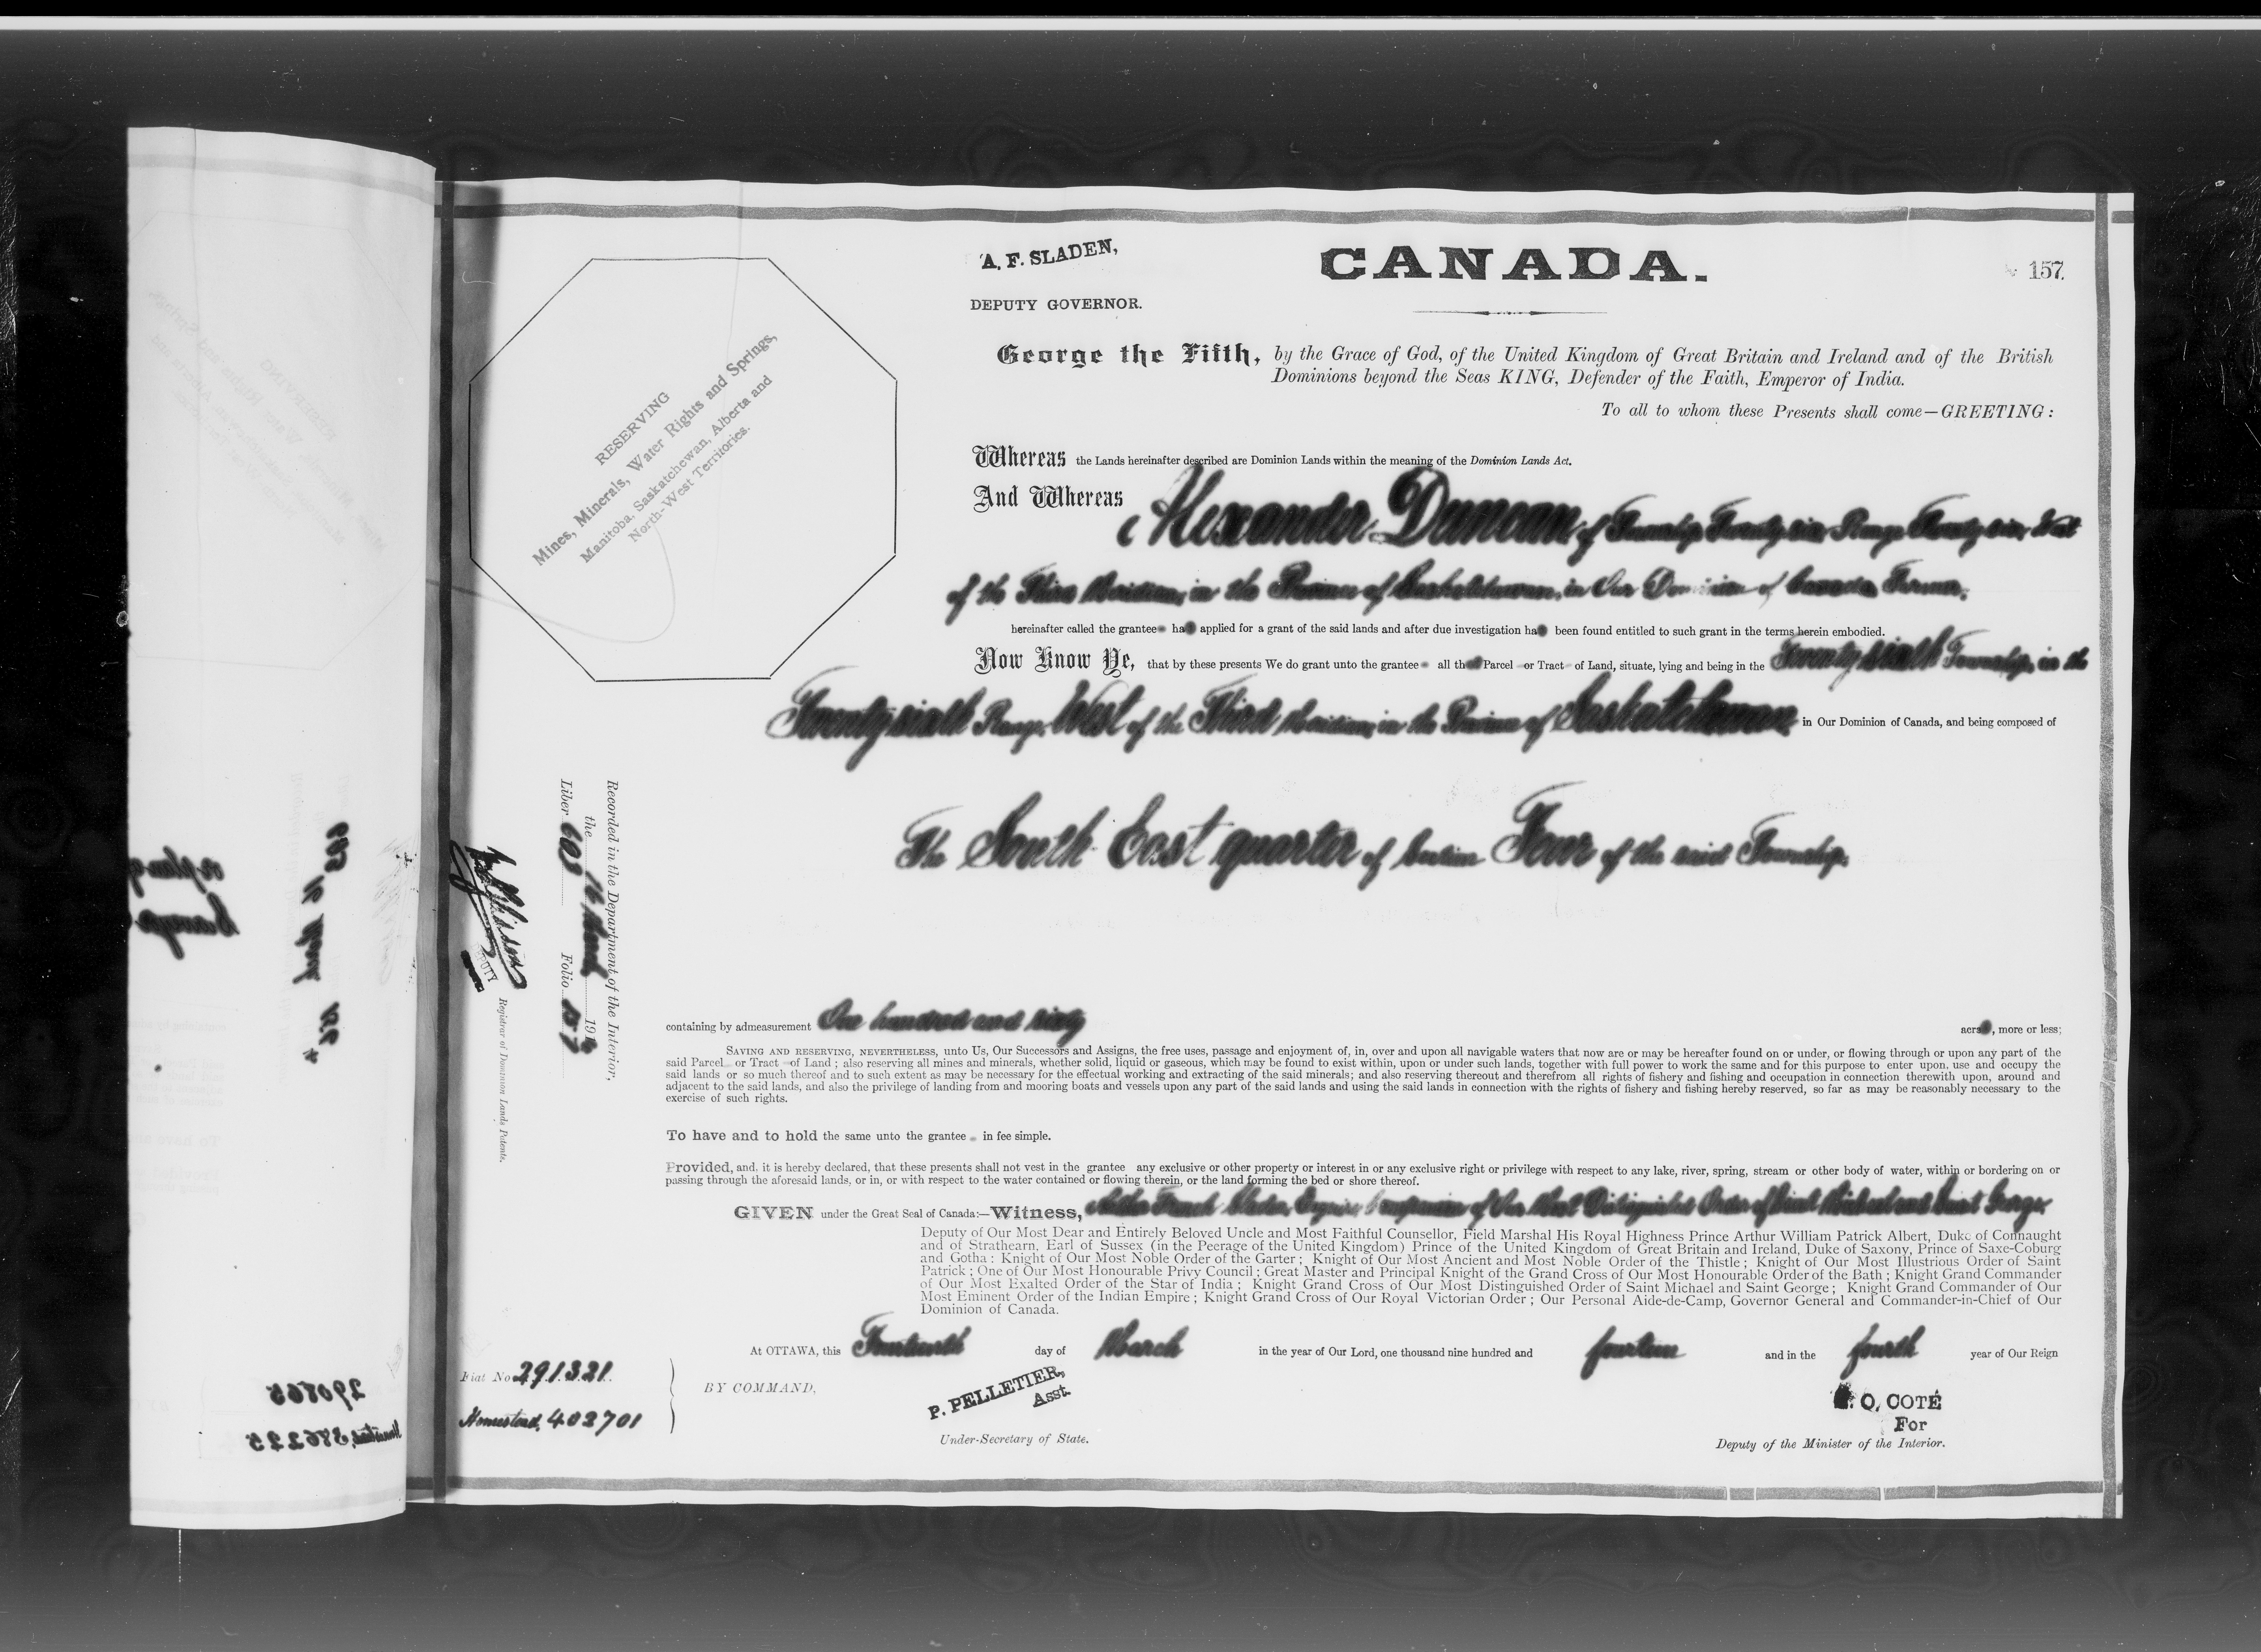 A. F. SLADEN,
DEPUTY GOVERNOR.
CANADA.
157
George the Fifth, by the Grace of God, of the United Kingdom of Great Britain and Ireland and of the British
Dominions beyond the Seas KING, Defender of the Faith, Emperor of India.
To all to whom these Presents shall come—GREETING:
RESERVING
Mines, Minerals, Water Rights and Springs,
Manitoba, Saskatchewan, Alberta and
North-West Territories.
Whereas the Lands hereinafter described are Dominion Lands within the meaning of the Dominion Lands Act.
And Whereas Alexander Duncan of Township Twenty six Range Twenty six, West
of the Third Meridian, in the Province of Saskatchewan, in Our Dominion of Canada, Farmer,
hereinafter called the grantee has applied for a grant of the said lands and after due investigation has been found entitled to such grant in the terms herein embodied.
Now Know Ye, that by these presents We do grant unto the grantee all that Parcel or Tract of Land, situate, lying and being in the Twenty sixth Township, in the
Twenty sixth Range, West of the Third Meridian, in the Province of Saskatchewan in Our Dominion of Canada, and being composed of
The South East quarter of Section Four of the said Township,
Recorded in the Department of the Interior,
the 16 March 1914
Liber 603 Folio 157
DEPUTY
Registrar of Dominion Lands Patents.
containing by admeasurement One hundred and sixty acres, more or less;
SAVING AND RESERVING, NEVERTHELESS, unto Us, Our Successors and Assigns, the free uses, passage and enjoyment of, in, over and upon all navigable waters that now are or may be hereafter found on or under, or flowing through or upon any part of the
said Parcel or Tract of Land; also reserving all mines and minerals, whether solid, liquid or gaseous, which may be found to exist within, upon or under such lands, together with full power to work the same and for this purpose to enter upon, use and occupy the
said lands or so much thereof and to such extent as may be necessary for the effectual working and extracting of the said minerals; and also reserving thereout and therefrom all rights of fishery and fishing and occupation in connection therewith upon, around and
adjacent to the said lands, and also the privilege of landing from and mooring boats and vessels upon any part of the said lands and using the said lands in connection with the rights of fishery and fishing hereby reserved, so far as may be reasonably necessary to the
exercise of such rights.
To have and to hold the same unto the grantee in fee simple.
Provided, and, it is hereby declared, that these presents shall not vest in the grantee any exclusive or other property or interest in or any exclusive right or privilege with respect to any lake, river, spring, stream or other body of water, within or bordering on or
passing through the aforesaid lands, or in, or with respect to the water contained or flowing therein, or the land forming the bed or shore thereof.
GIVEN under the Great Seal of Canada:—Witness, Arthur French Sladen, Esquire, Companion of Our Most Distinguished Order of Saint Michael and Saint George,
Deputy of Our Most Dear and Entirely Beloved Uncle and Most Faithful Counsellor, Field Marshal His Royal Highness Prince Arthur William Patrick Albert, Duke of Connaught
and of Strathearn, Earl of Sussex (in the Peerage of the United Kingdom) Prince of the United Kingdom of Great Britain and Ireland, Duke of Saxony, Prince of Saxe-Coburg
and Gotha: Knight of Our Most Noble Order of the Garter; Knight of Our Most Ancient and Most Noble Order of the Thistle; Knight of Our Most Illustrious Order of Saint
Patrick; One of Our Most Honourable Privy Council; Great Master and Principal Knight of the Grand Cross of Our Most Honourable Order of the Bath; Knight Grand Commander
of Our Most Exalted Order of the Star of India; Knight Grand Cross of Our Most Distinguished Order of Saint Michael and Saint George; Knight Grand Commander of Our
Most Eminent Order of the Indian Empire; Knight Grand Cross of Our Royal Victorian Order; Our Personal Aide-de-Camp, Governor General and Commander-in-Chief of Our
Dominion of Canada.
At OTTAWA, this Fourteenth day of March in the year of Our Lord, one thousand nine hundred and fourteen and in the fourth year of Our Reign
Fiat No 291321.
Homestead, 402701
BY COMMAND,
P. PELLETIER,
Asst.
Under-Secretary of State.
O. COTÉ
For
Deputy of the Minister of the Interior.